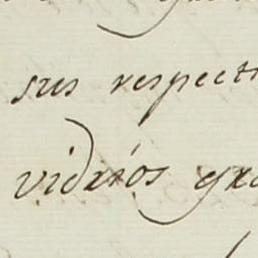 sus respecti
vidrios gra